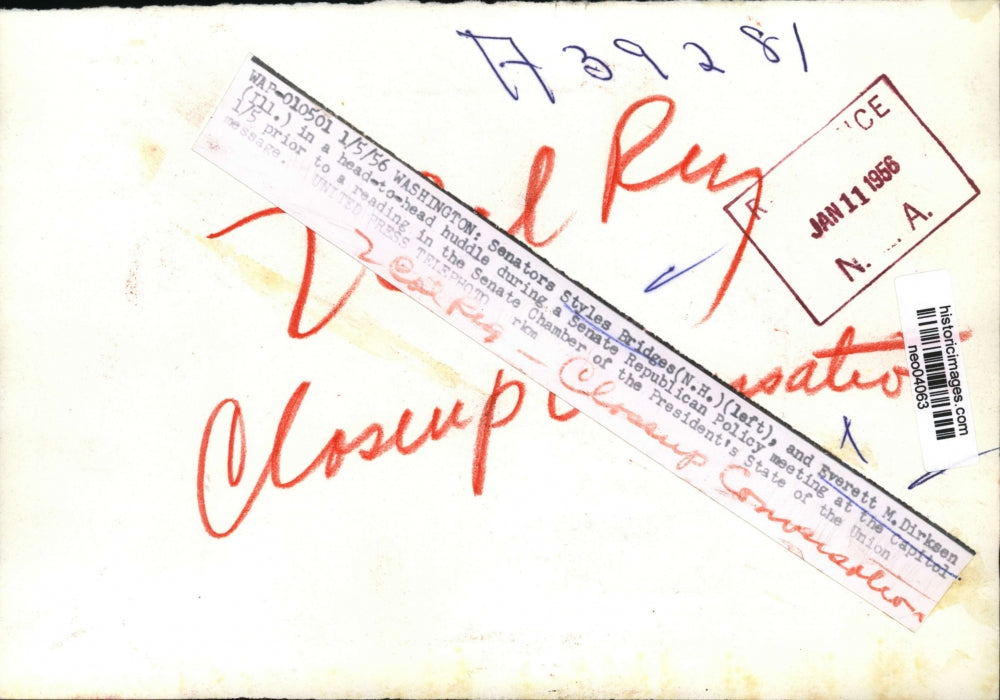 A 39281
CE
JAN 11 1956
N. A.
historicimages.com
neo04063
WAP-010501 1/5/56 WASHINGTON: Senators Styles Bridges(N.H.)(left), and Everett M.Dirksen
(Ill.) in a head-to-head huddle during a Senate Republican Policy meeting at the Capitol
1/5 prior to a reading in the Senate Chamber of the President's State of the Union
message.
UNITED PRESS TELEPHOTO rkm
2 Col Reg — Closeup Conversation
Reg
Closeup